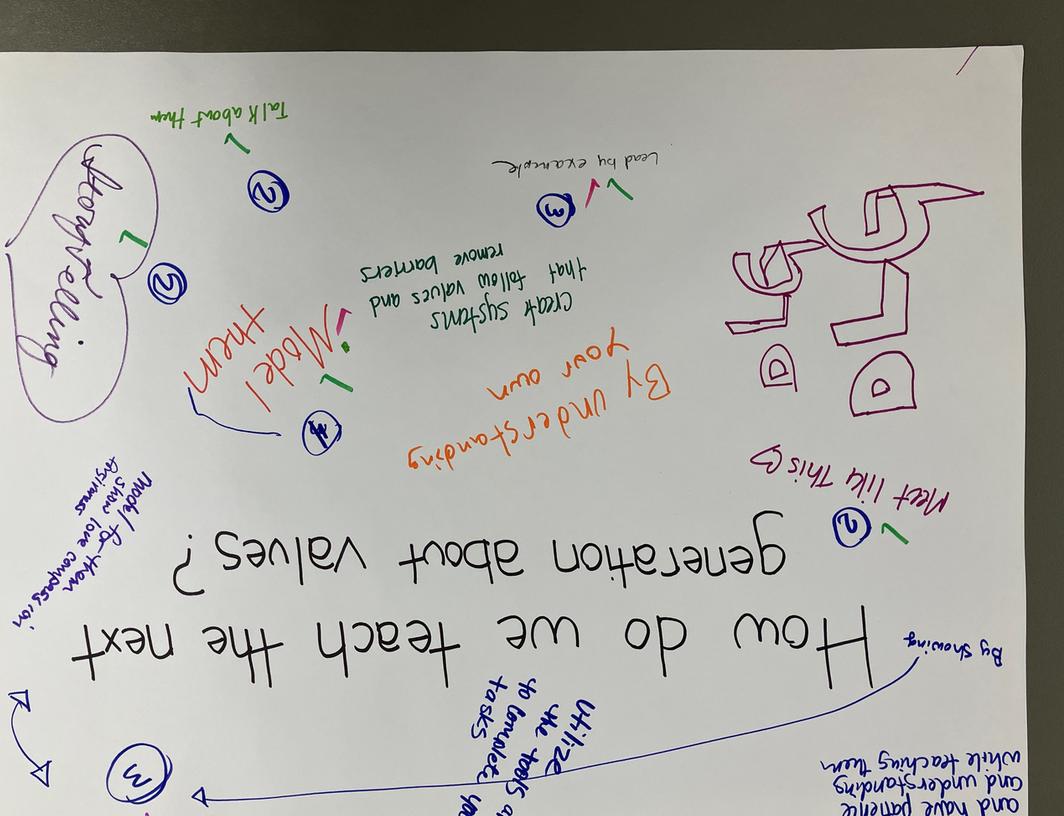 How do we teach the next
generation about values?
By Showing
and have patience
and understanding
while teaching them
Utilize
the tools
to complete
tasks
Meet like This
2
By understanding
your own
4
Model
them
Create systems
that follow values and
remove barriers
3
Lead by example
2
Talk about them
2
Storytelling
Model for them
show love compassion
forgiveness
3